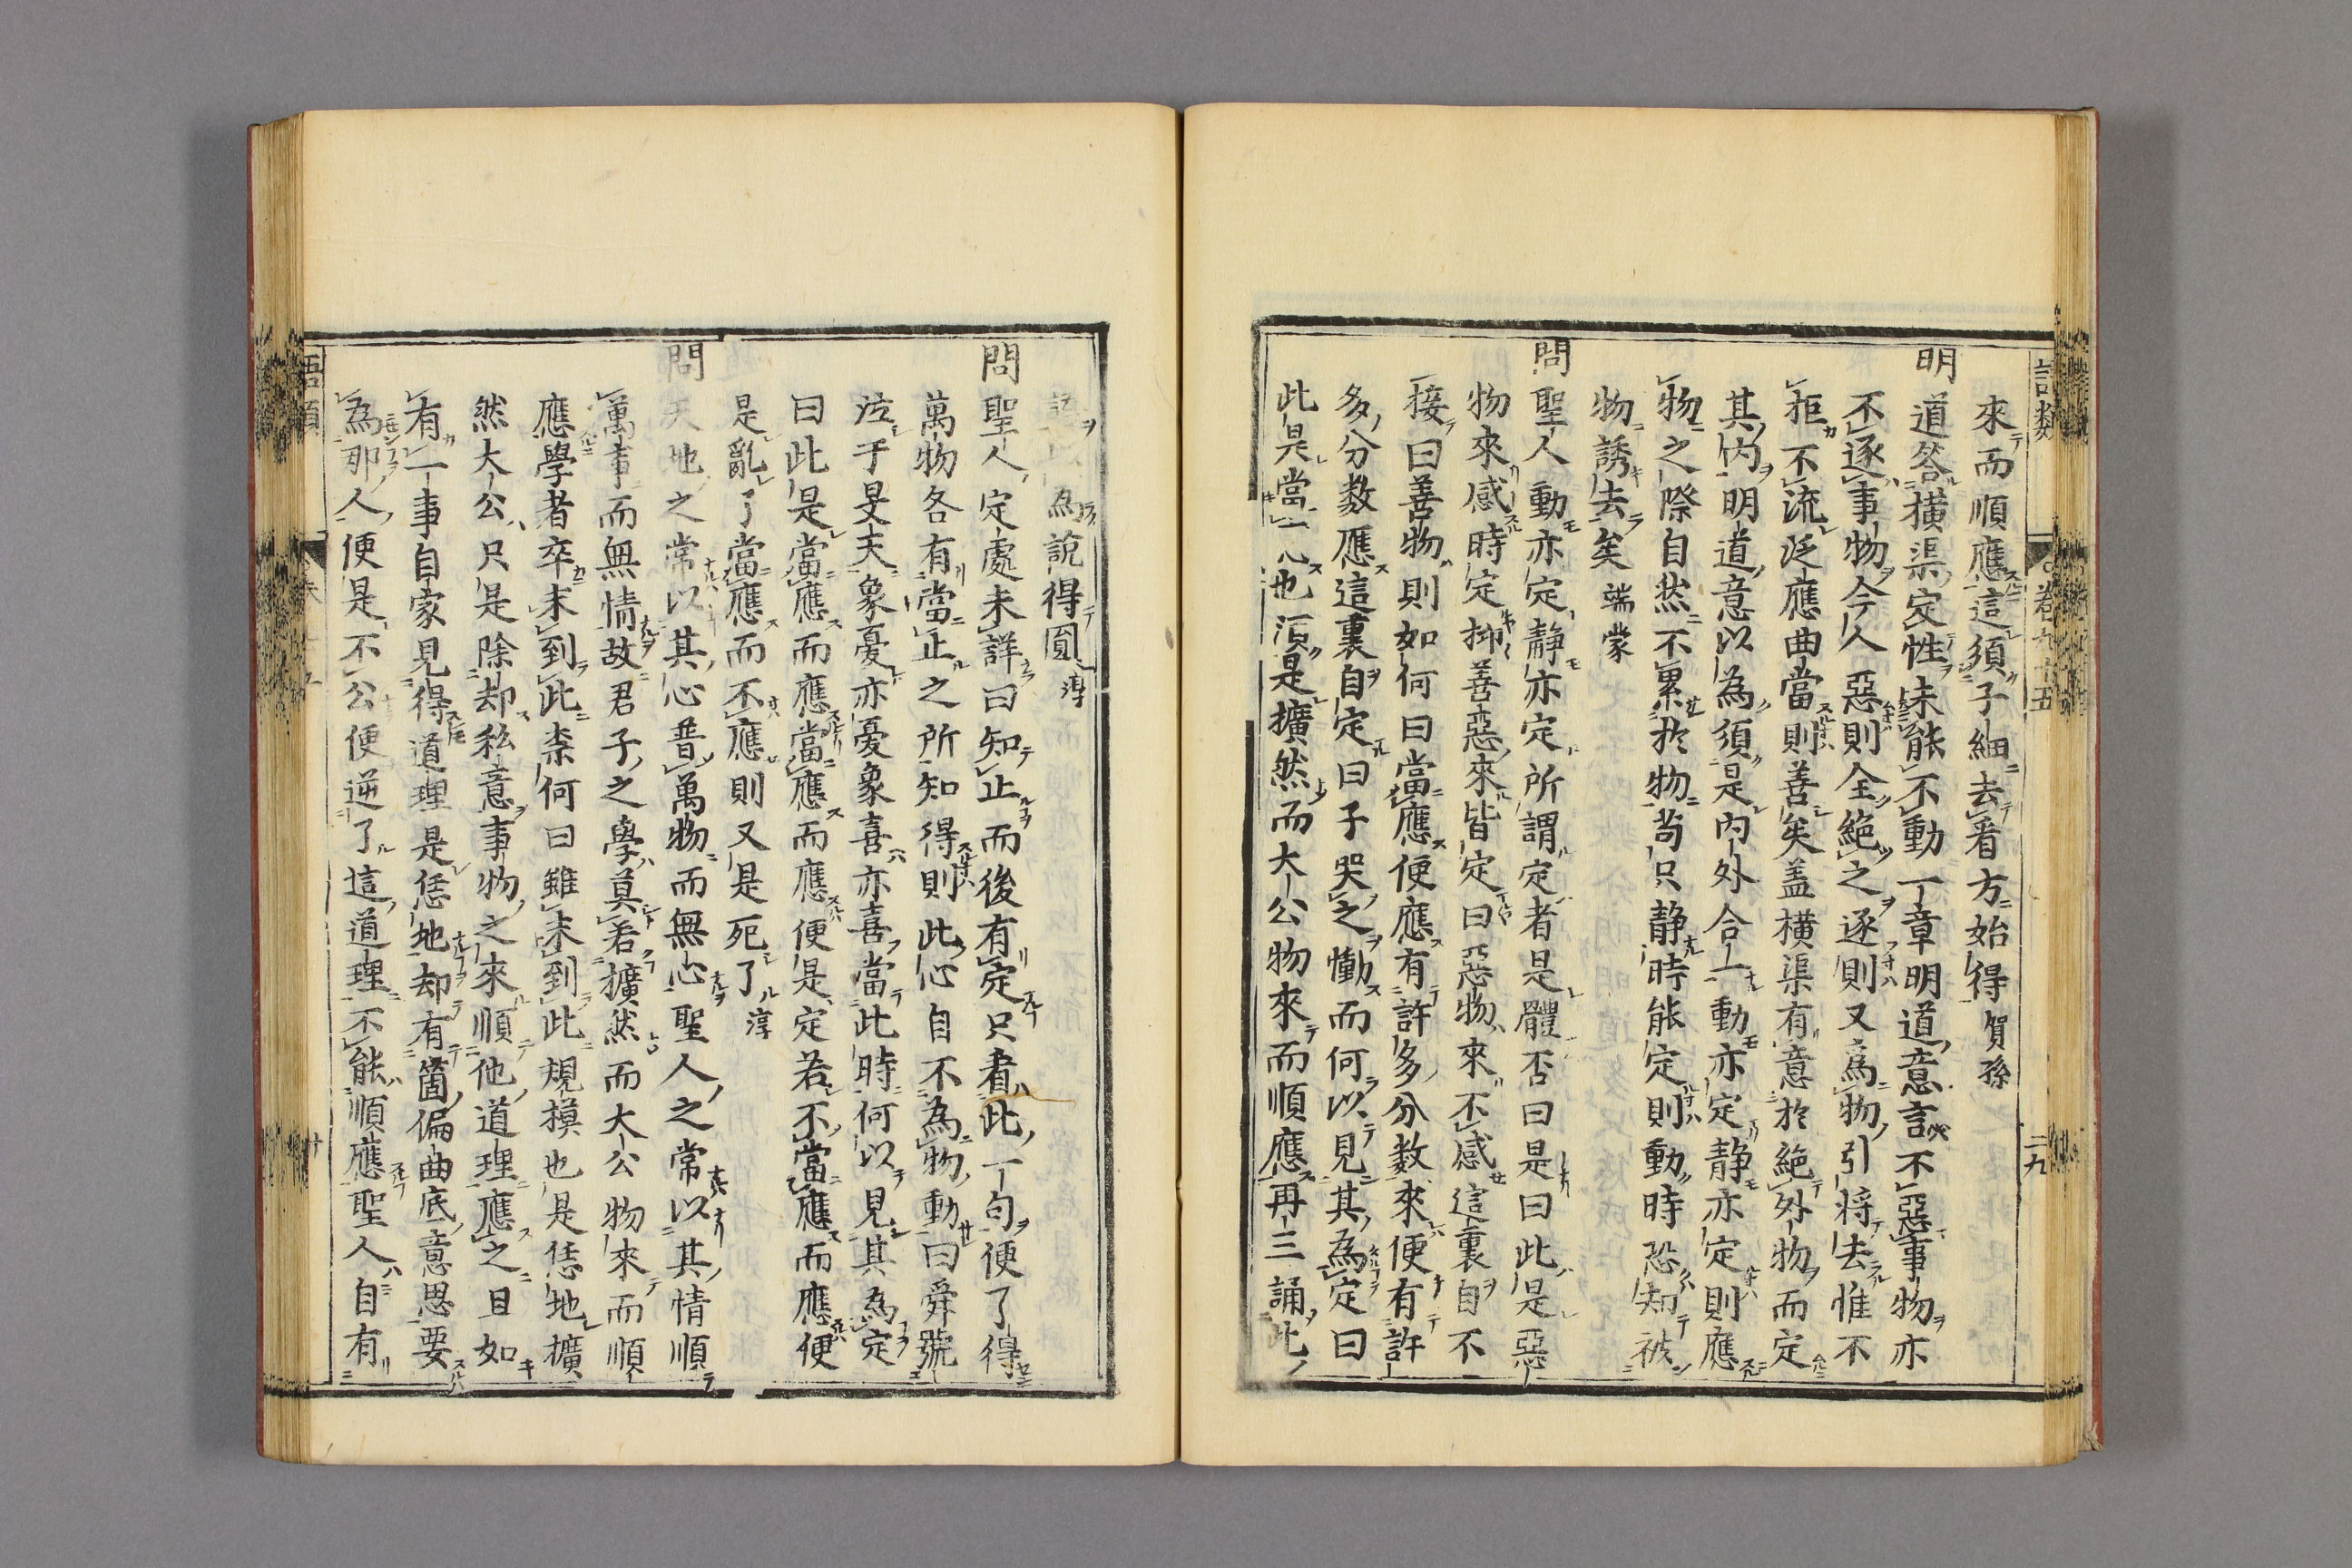 語類
卷九十五
二九
來而順應這須子細去看方始得賀孫
明道答橫渠定性未能不動一章明道意言不惡事物亦
不逐事物今人惡則全絶之逐則又爲物引將去惟不
拒不流泛應曲當則善矣盖橫渠有意於絶外物而定
其內明道意以為須是內外合一動亦定静亦定則應
物之際自然不累於物苟只静時能定則動時恐知被
物誘去矣端蒙
問聖人動亦定静亦定所謂定者是體否曰是曰此是惡
物來感時定抑善惡來皆定曰惡物來不感這裏自不
接曰善物則如何曰當應便應有許多分數來便有許
多分數應這裏自定曰子哭之慟而何以見其為定曰
此是當也須是擴然而大公物來而順應再三誦此
為說得圓淳
問聖人定處未詳曰知止而後有定只看此一句便了得
萬物各有當止之所知得則此心自不為物動曰舜號
泣于旻天象憂亦憂象喜亦喜當此時何以見其為定
曰此是當應而應當應而應便是定若不當應而應便
是亂了當應而不應則又是死了淳
問天地之常以其心普萬物而無心聖人之常以其情順
萬事而無情故君子之學莫若擴然而大公物來而順
應學者卒未到此柰何曰雖未到此規模也是恁地擴
然大公只是除却私意事物之來順他道理應之且如
有一事自家見得道理是恁地却有箇偏曲底意思要
為那人便是不公便逆了這道理不能順應聖人自有
語類